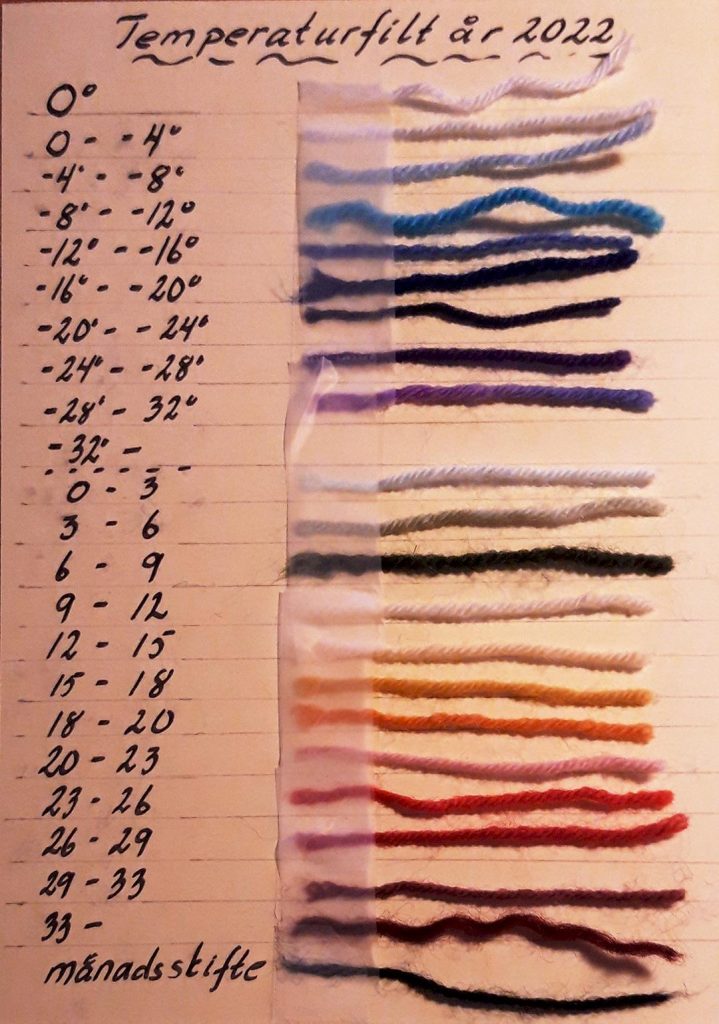 Temperaturfilt år 2022
0°
0 - -4°
-4° - -8°
-8° - -12°
-12° - -16°
-16° - -20°
-20° - -24°
-24° - -28°
-28° - 32°
-32° -
0 - 3
3 - 6
6 - 9
9 - 12
12 - 15
15 - 18
18 - 20
20 - 23
23 - 26
26 - 29
29 - 33
33 -
månadsskifte